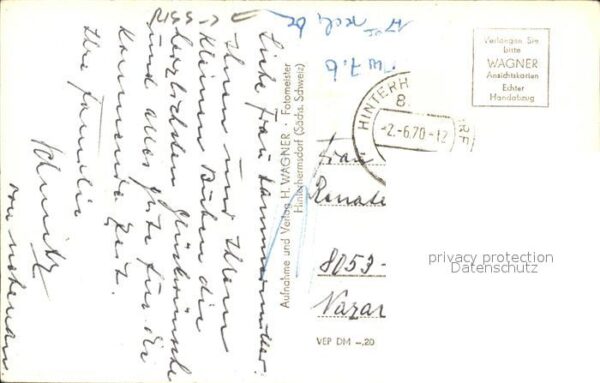 Liebe Frau Dammermüller.
Ihnen und Ihrem
kleinen Buben die
herzlichsten Glückwünsche
und alles gute für die
kommende Zeit.
Ihre Familie
Schmitz
von nebenan
Aufnahme und Verlag H. WAGNER · Fotomeister
Hinterhermsdorf (Sächs. Schweiz)
HINTERH
8.
-2.-6.70-12
Verlangen Sie
bitte
WAGNER
Ansichtskarten
Echter
Handabzug
Frau
Renate
8053-
Nazar
VEP DM -.20
privacy protection
Datenschutz